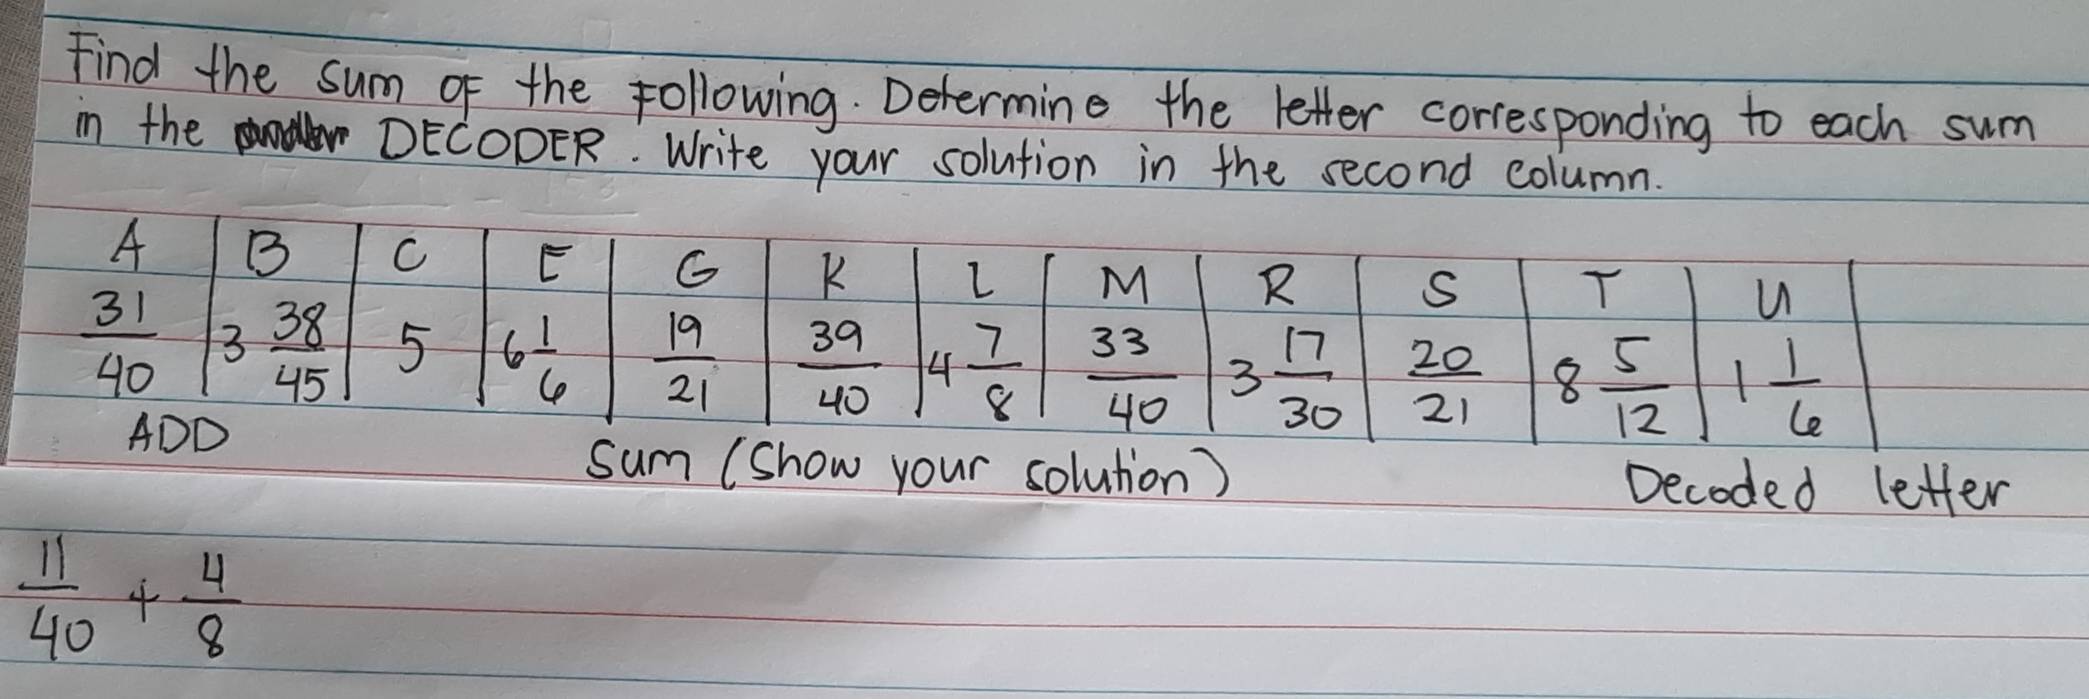 Find the sum of the following. Determine the letter corresponding to each sum
in the DECODER. Write your solution in the second column.
A B C E G K L M R S T U
31/40 3 38/45 5 6 1/6 19/21 39/40 4 7/8 33/40 3 17/30 20/21 8 5/12 1 1/6
ADD Sum (Show your solution) Decoded letter
11/40 + 4/8